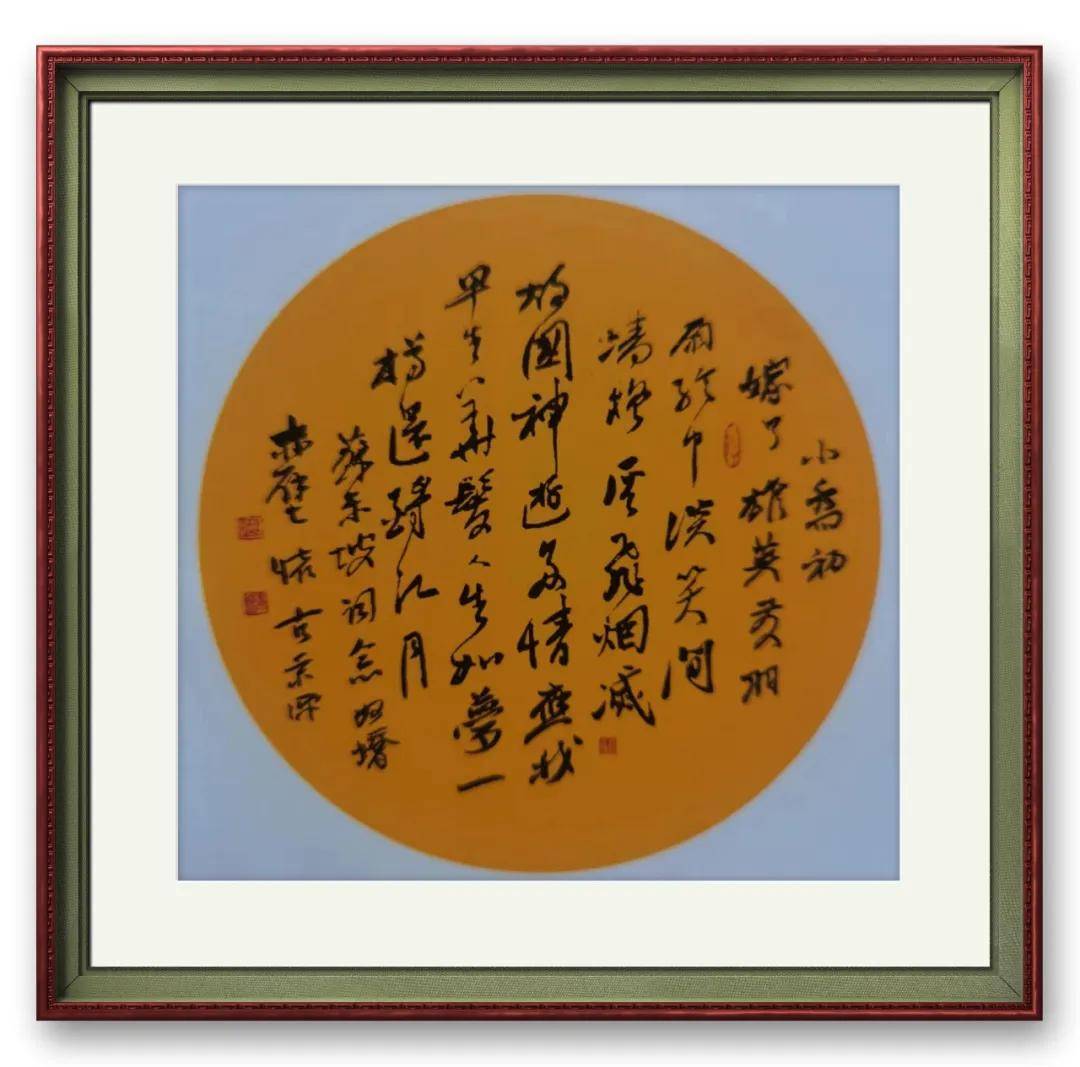 小喬初
嫁了雄英发羽
扇綸巾淡笑间
墙橹灰飛烟滅
故國神遊多情應我
早生華髮人生如夢一
樽還酹江月
蘇东坡词念奴嬌
赤壁怀古